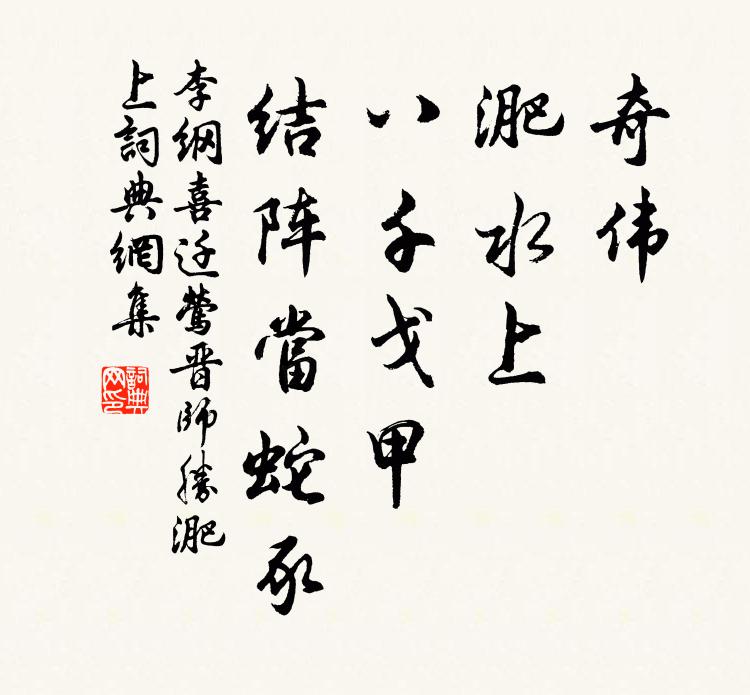 奇伟
淝水上
八千戈甲
结阵當蛇豕
李纲喜迁莺晋師勝淝
上詞典網集
詞典网印